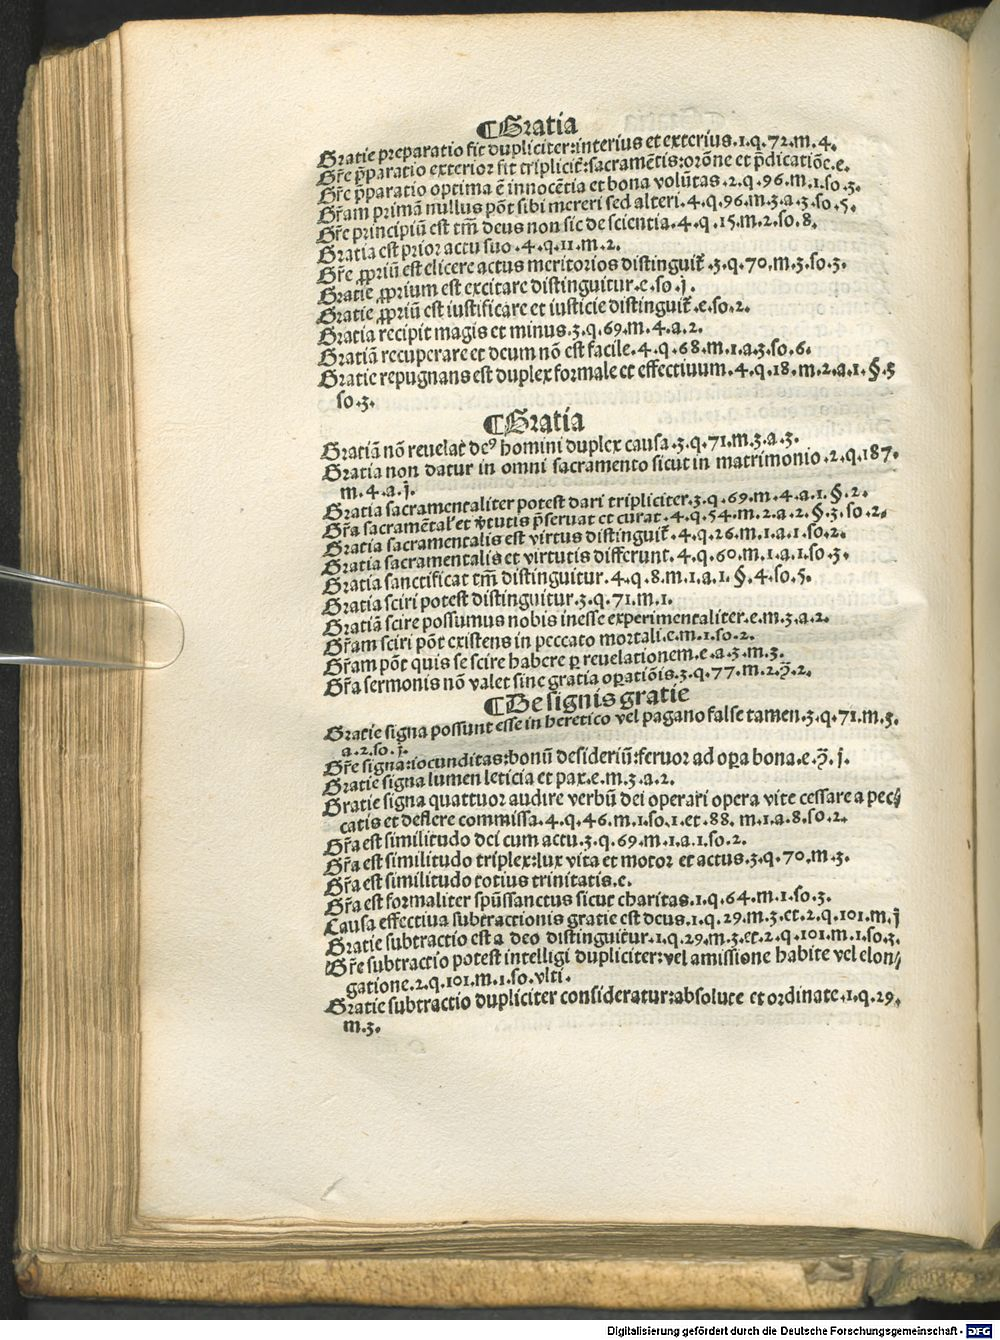 ¶Gratia
Gratie preparatio fit dupliciter:interius et exterius.1.q.72.m.4.
Gr̃e p̄paratio exterior fit triplicit̃:sacramẽtis:orõne et p̃dicatiõe.e.
Gr̃e p̄paratio optima ẽ innocẽtia et bona volũtas.2.q.96.m.1.so.3.
Gr̃am primã nullus põt sibi mereri sed alteri.4.q.96.m.3.a.3.so.5.
Gr̃e principiũ est tm̃ deus non sic de scientia.4.q.15.m.2.so.8.
Gratia est prior actu suo.4.q.11.m.2.
Gr̃e ꝓpriũ est elicere actus meritorios distinguit̃.3.q.70.m.3.so.3.
Gratie ꝓprium est excitare distinguitur.e.so.j.
Gratie ꝓpriũ est iustificare et iusticie distinguit̃.e.so.2.
Gratia recipit magis et minus.3.q.69.m.4.a.2.
Gratiã recuperare et deum nõ est facile.4.q.68.m.1.a.3.so.6.
Gratie repugnans est duplex formale et effectiuum.4.q.18.m.2.a.1.§.5
so.3.
¶Gratia
Gratiã nõ reuelat deꝰ homini duplex causa.3.q.71.m.3.a.3.
Gratia non datur in omni sacramento sicut in matrimonio.2.q.187.
m.4.a.j.
Gratia sacramentaliter potest dari tripliciter.3.q.69.m.4.a.1.§.2.
Gr̃a sacramẽtal' et v̄tutis p̃seruat et curat.4.q.54.m.2.a.2.§.3.so.2.
Gratia sacramentalis est virtus distinguit̃.4.q.26.m.1.a.1.so.2.
Gratia sacramentalis et virtutis differunt.4.q.60.m.1.a.1.so.3.
Gratia sanctificat tm̃ distinguitur.4.q.8.m.1.a.1.§.4.so.5.
Gratia sciri potest distinguitur.3.q.71.m.1.
Gratiã scire possumus nobis inesse experimentaliter.e.m.3.a.2.
Gr̃am sciri põt existens in peccato mortali.e.m.1.so.2.
Gr̃am põt quis se scire habere ꝑ reuelationem.e.a.3.m.3.
Gr̃a sermonis nõ valet sine gratia oꝑatiõis.3.q.77.m.2.q̃.2.
¶De signis gratie
Gratie signa possunt esse in heretico vel pagano false tamen.3.q.71.m.3.
a.2.so.j.
Gr̃e signa:iocunditas:bonũ desideriũ:feruor ad oꝑa bona.e.q̃.j.
Gratie signa lumen leticia et pax.e.m.3.a.2.
Gratie signa quattuor audire verbũ dei operari opera vite cessare a pec⸗
catis et deflere commissa.4.q.46.m.1.so.1.et.88.m.1.a.8.so.2.
Gr̃a est similitudo dei cum actu.3.q.69.m.1.a.1.so.2.
Gr̃a est similitudo triplex:lux vita et motor et actus.3.q.70.m.3.
Gr̃a est similitudo totius trinitatis.e.
Gr̃a est formaliter spũssanctus sicut charitas.1.q.64.m.1.so.3.
Causa effectiua subtractionis gratie est deus.1.q.29.m.3.et.2.q.101.m.j
Gratie subtractio est a deo distinguitur.1.q.29.m.3.et.2.q.101.m.1.so.3.
Gr̃e subtractio potest intelligi dupliciter:vel amissione habite vel elon⸗
gatione.2.q.101.m.1.so.vlti.
Gratie subtractio dupliciter consideratur:absolute et ordinate.1.q.29.
m.3.
Digitalisierung gefördert durch die Deutsche Forschungsgemeinschaft - DFG